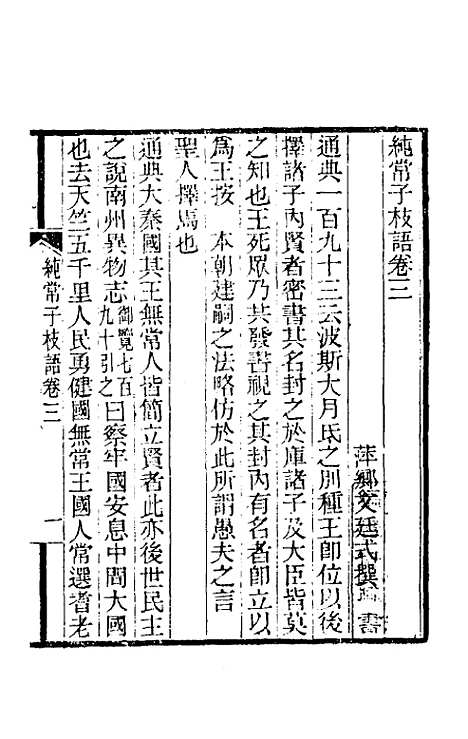 純常子枝語卷三
萍鄉文廷式撰
通典一百九十三云波斯大月氏之別種王卽位以後
擇諸子內賢者密書其名封之於庫諸子及大臣皆莫
之知也王死眾乃共發書視之其封內有名者卽立以
爲王按　本朝建嗣之法略仿於此所謂愚夫之言
聖人擇焉也
通典大秦國其王無常人皆簡立賢者此亦後世民主
之說南州異物志御覽七百九十引之曰察牢國安息中間大國
也去天竺五千里人民勇健國無常王國人常選耆老
純常子枝語卷三
一